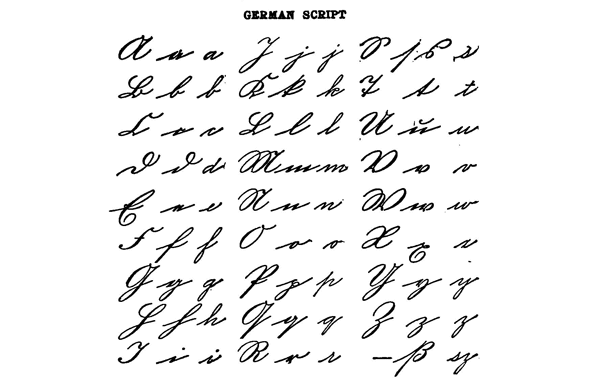 GERMAN SCRIPT
A a a J j j S ſ s s
B b b K k k T t t
C c c L l l U u u
D d d M m m V v v
E e e N n n W w w
F f f O o o X x x
G g g P p p Y y y
H h h Q q q Z z z
I i i R r r — ß sz